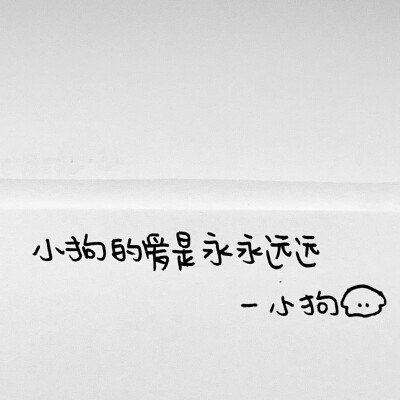 小狗的爱是永永远远
-小狗